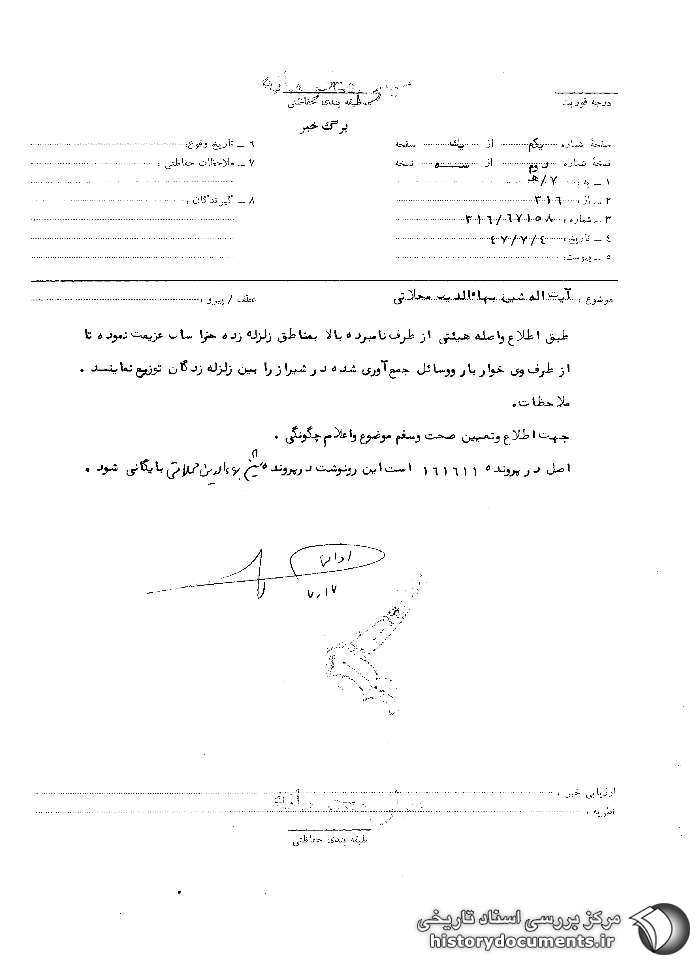 طبقه بندی حفاظتی
درجه فوریت
برگ خبر
صفحهٔ شماره یکم از یك صفحه
نسخهٔ شماره دوم از سه نسخه
۱ ــ به : ۷/ھ
۲ ــ از : ۳۱۶
۳ ــ شماره : ۳۱۶/۶۷۱۵۸
٤ ــ تاریخ : ٤۷/۷/٤
٥ ــ پیوست :
۶ ــ تاریخ وقوع :
۷ ــ ملاحظات حفاظتی :
۸ ــ گیرندگان :
موضوع : آیت اله شیخ بهاءالدین محلاتی
عطف / پیرو :
طبق اطلاع واصله هیئتی از طرف نامبرده بالا بمناطق زلزله زده خراسان عزیمت نموده تا
از طرف وی خواربار ووسائل جمع‌آوری شده در شیراز را بین زلزله زدگان توزیع نمایند .
ملاحظات.
جهت اطلاع وتعیین صحت وسقم موضوع واعلام چگونگی .
اصل در پرونده ۱۶۱۶۱۱ است این رونوشت در پرونده شیخ بهاءالدین محلاتی بایگانی شود .
۷٫۱۷
ارزیابی خبر :
نظریه :
طبقه بندی حفاظتی
مرکز بررسی اسناد تاریخی
historydocuments.ir